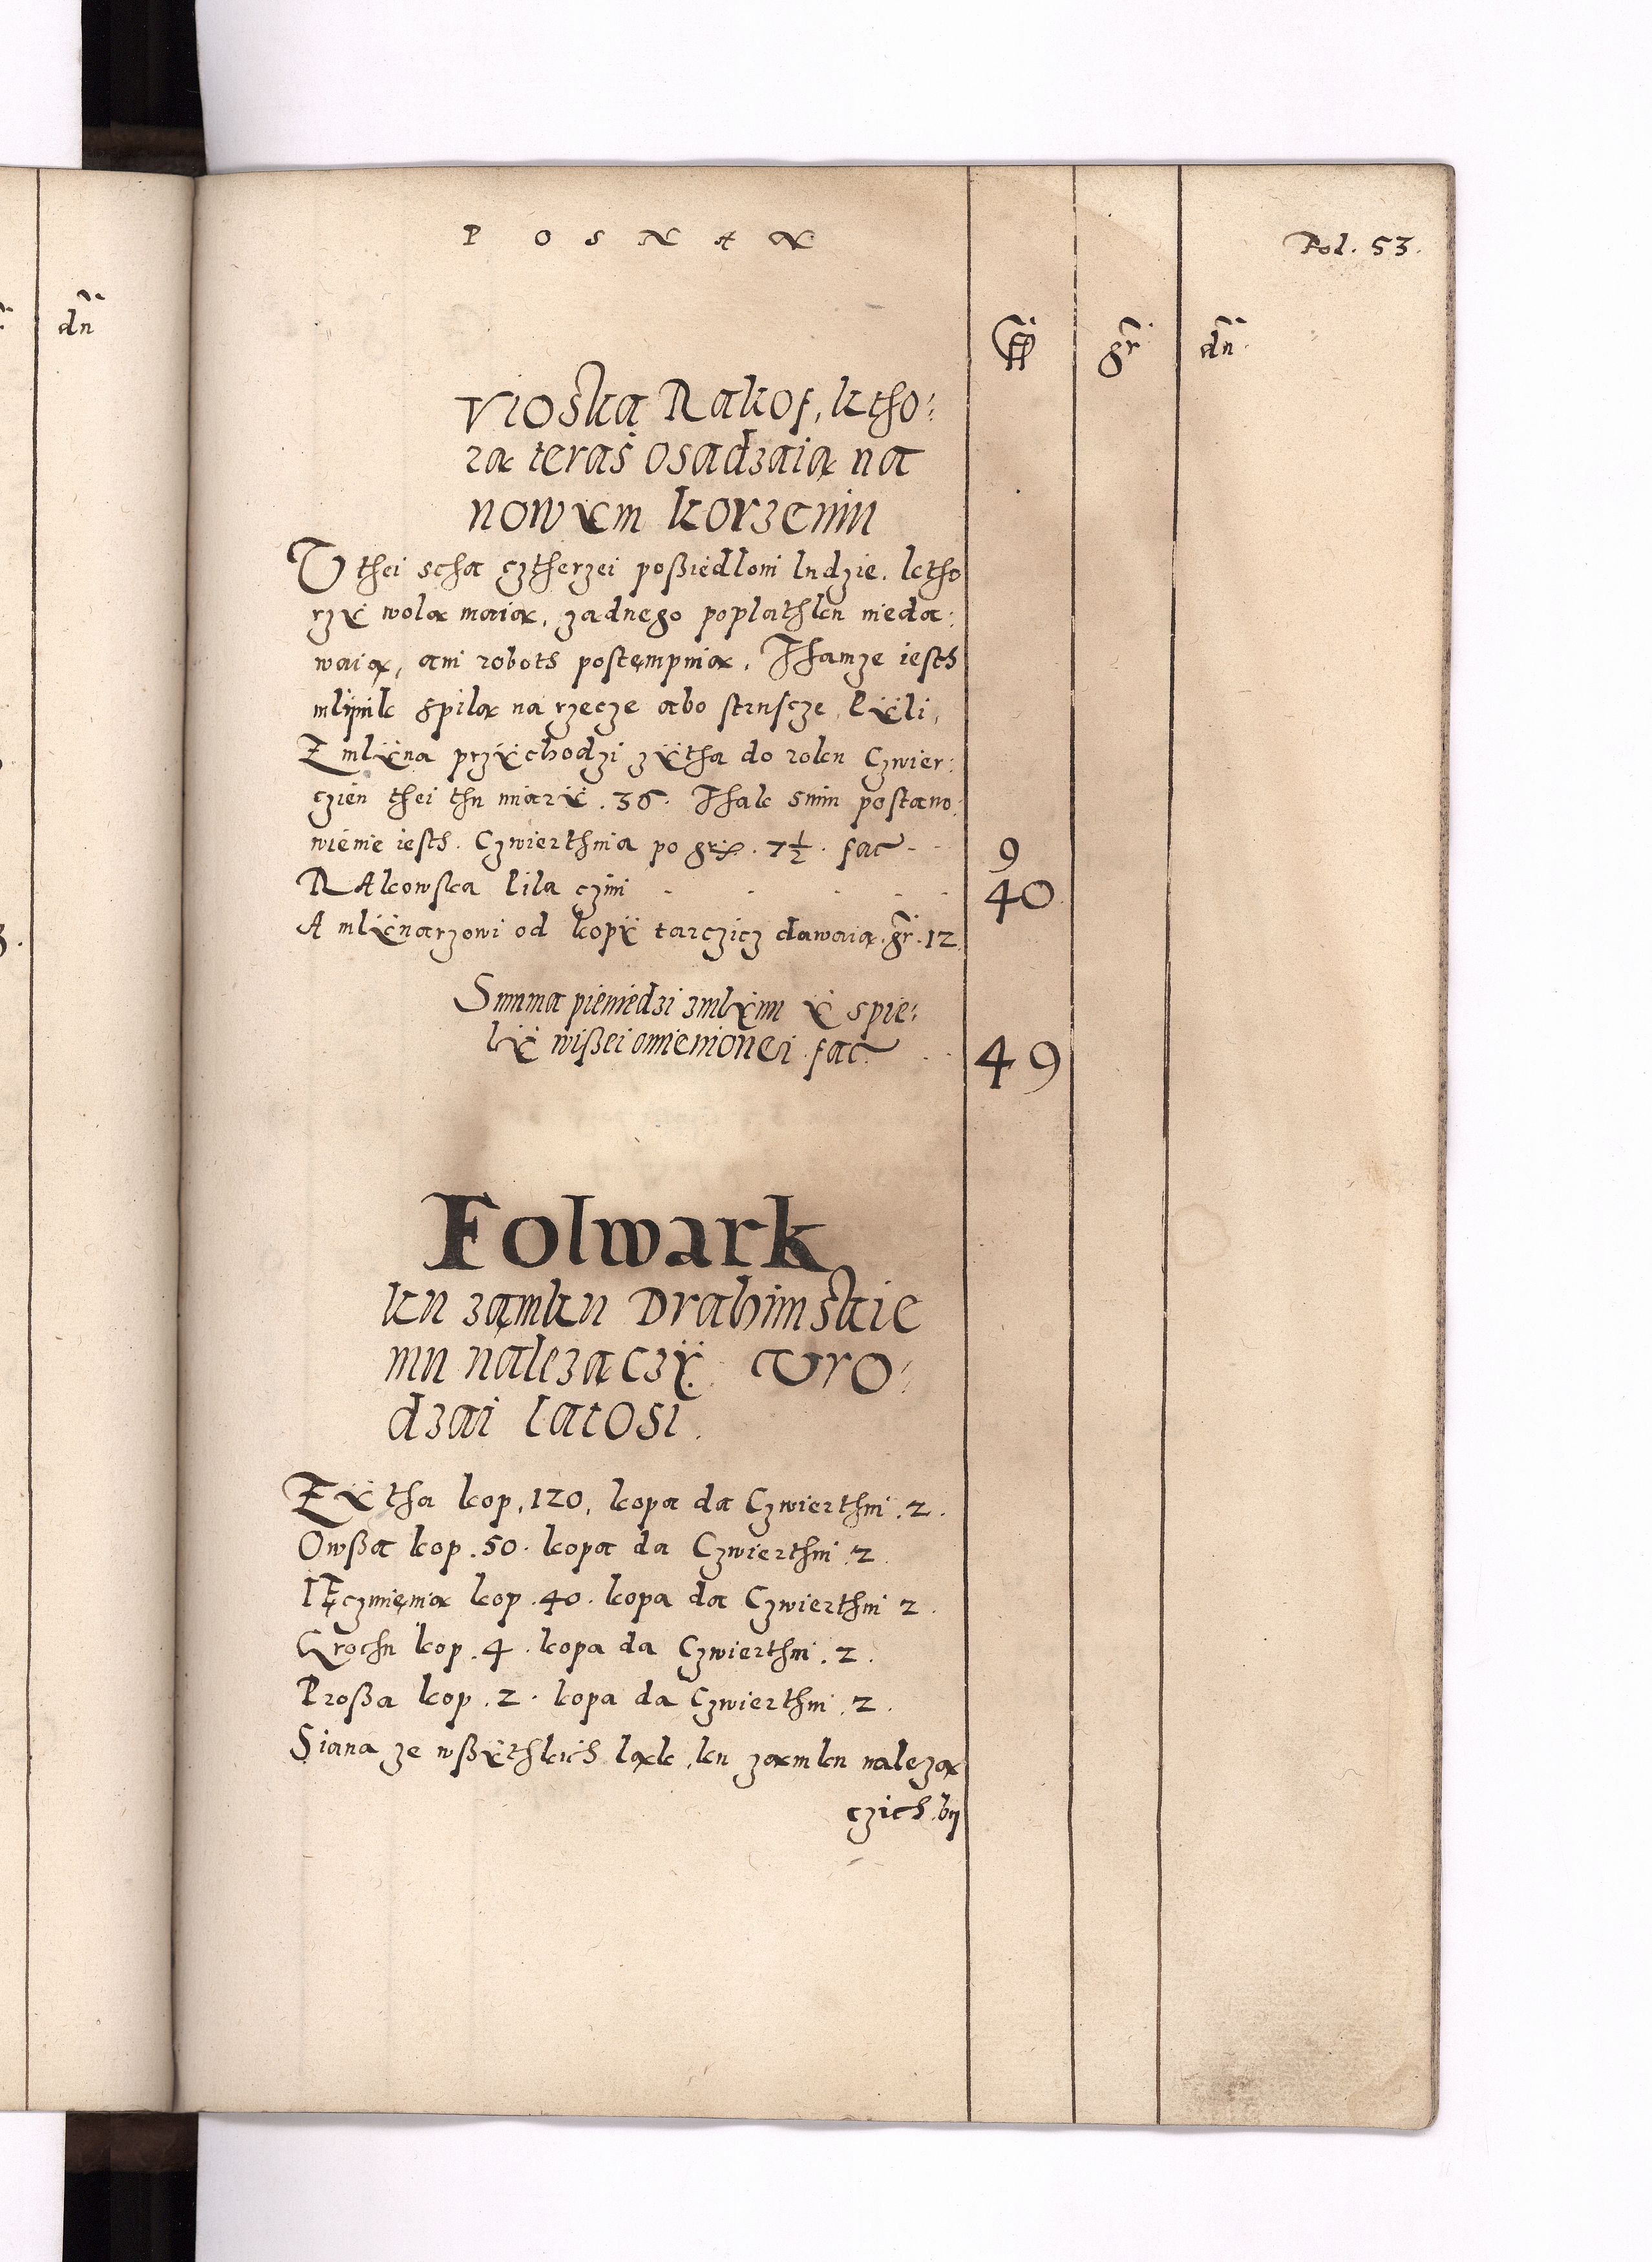 dn
POSNAN
Fol. 53.
ff gr dn
Vioska Rakof, ktho:
ra teras osadzaią na
nowÿm korzeniu
W thei scha cztherzei poßiedloni ludzie. ktho
rzÿ wolą maią, zadnego poplathku nieda:
waią, ani roboth postempuią. Thamze iesth
mlÿnik ÿ pila na rzecze abo strusze,
Z mlÿna przÿchodzi zÿtha do roku Czwier:
czien thei thu miarÿ . 36. Thak snim postano:
wienie iesth. Czwierthnia po gr . 7½ . fac 9
RAkowska Pila czini 40.
A mlÿnarzowi od kopÿ tarczicz dawaią. gr. 12.
Summa pieniedzi z mlÿnu ÿ s pie:
lÿ wißei omienionei. fac 49
Folwark
ku zamku Drahimskie
mu nalezączÿ. Vro:
dzai latosi.
ZÿTha kop. 120, kopa da Czwierthni . 2.
Owßa kop . 50. kopa da Czwierthni . 2.
IĘczmięnia kop . 40. kopa da Czwierthni 2.
Grochu kop . 4. kopa da Czwierthni . 2.
Proßa kop . 2. kopa da Czwierthni . 2.
Siana ze wßÿthkich ląk, ku zamku nalezą
czich. bÿ